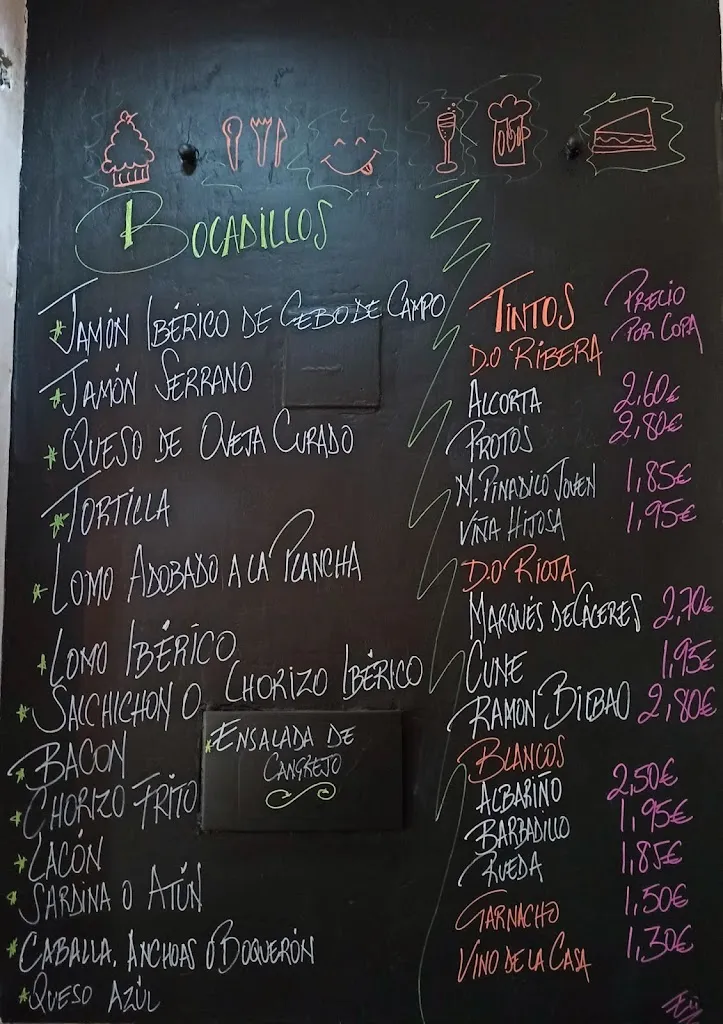 BOCADILLOS
* JAMÓN IBÉRICO DE CEBO DE CAMPO
* JAMÓN SERRANO
* QUESO DE OVEJA CURADO
* TORTILLA
* LOMO ADOBADO A LA PLANCHA
* LOMO IBÉRICO
* SALCHICHON O CHORIZO IBÉRICO
* BACON
* CHORIZO FRITO
* LACÓN
* SARDINA O ATÚN
* CABALLA, ANCHOAS Ó BOQUERÓN
* QUESO AZÚL
* ENSALADA DE
CANGREJO
TINTOS
PRECIO
POR COPA
D.O RIBERA
ALCORTA 2,60€
PROTOS 2,80€
M. PINADILO JOVEN 1,85€
VIÑA HIJOSA 1,95€
D.O RIOJA
MARQUÉS DE CÁCERES 2,70€
CUNE 1,95€
RAMON BILBAO 2,80€
BLANCOS
ALBARIÑO 2,50€
BARBADILLO 1,95€
RUEDA 1,85€
GARNACHO 1,50€
VINO DE LA CASA 1,30€